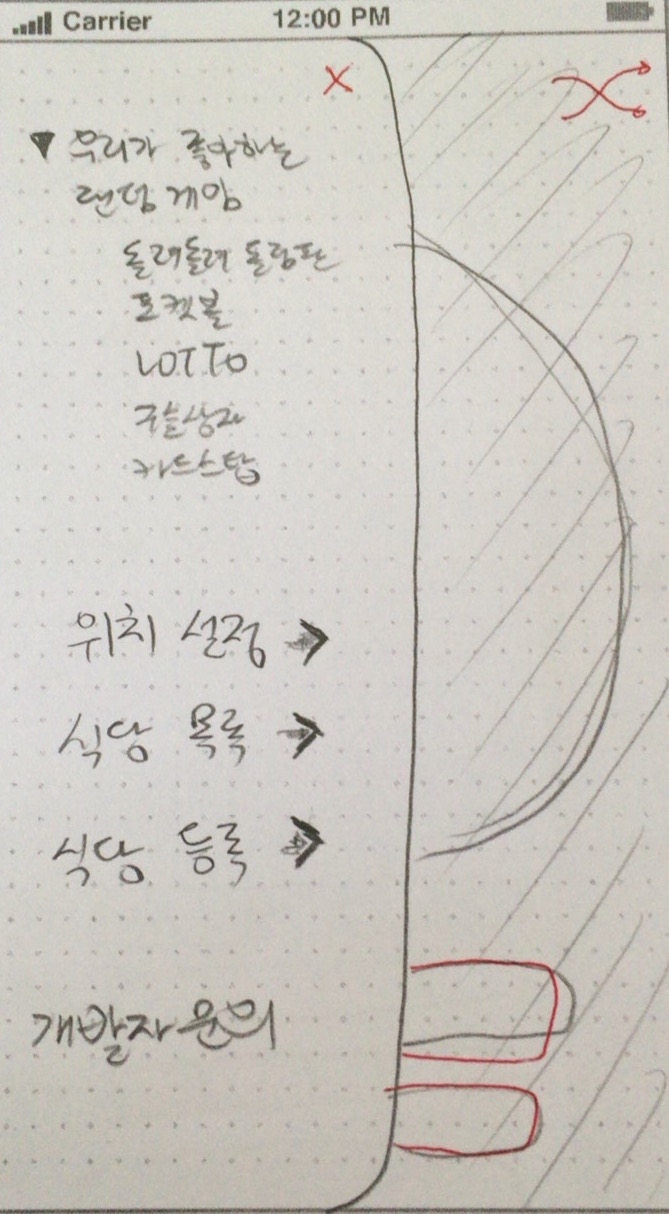 Carrier 12:00 PM
X
▼ 우리가 좋아하는
랜덤 게임
돌려돌려 돌림판
포켓볼
LOTTO
구슬상자
카드스탑
위치 설정 →
식당 목록 →
식당 등록 →
개발자 문의